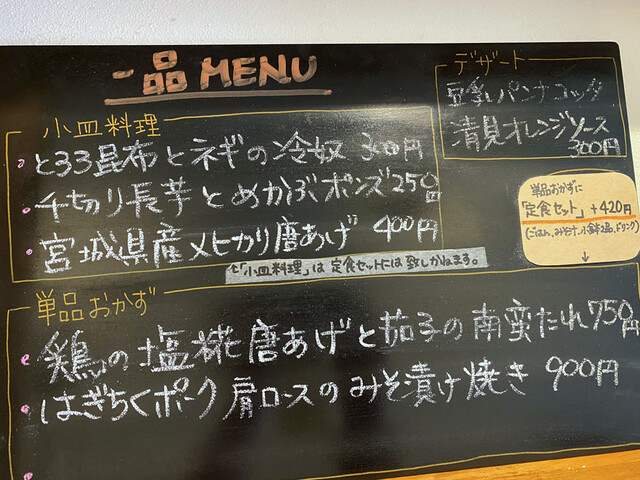 一品 MENU
小皿料理
・とろろ昆布とネギの冷奴 300円
・千切り長芋とめかぶポンズ 250円
・宮城県産メヒカリ唐あげ 400円
「小皿料理」は定食セットには致しかねます。
デザート
豆乳パンナコッタ
清見オレンジソース
300円
単品おかずに
「定食セット」+420円
(ごはん、みそ汁、小鉢2品、ドリンク)
↓
単品おかず
・鶏の塩糀唐あげと茄子の南蛮たれ 750円
・はぎちくポーク肩ロースのみそ漬け焼き 900円